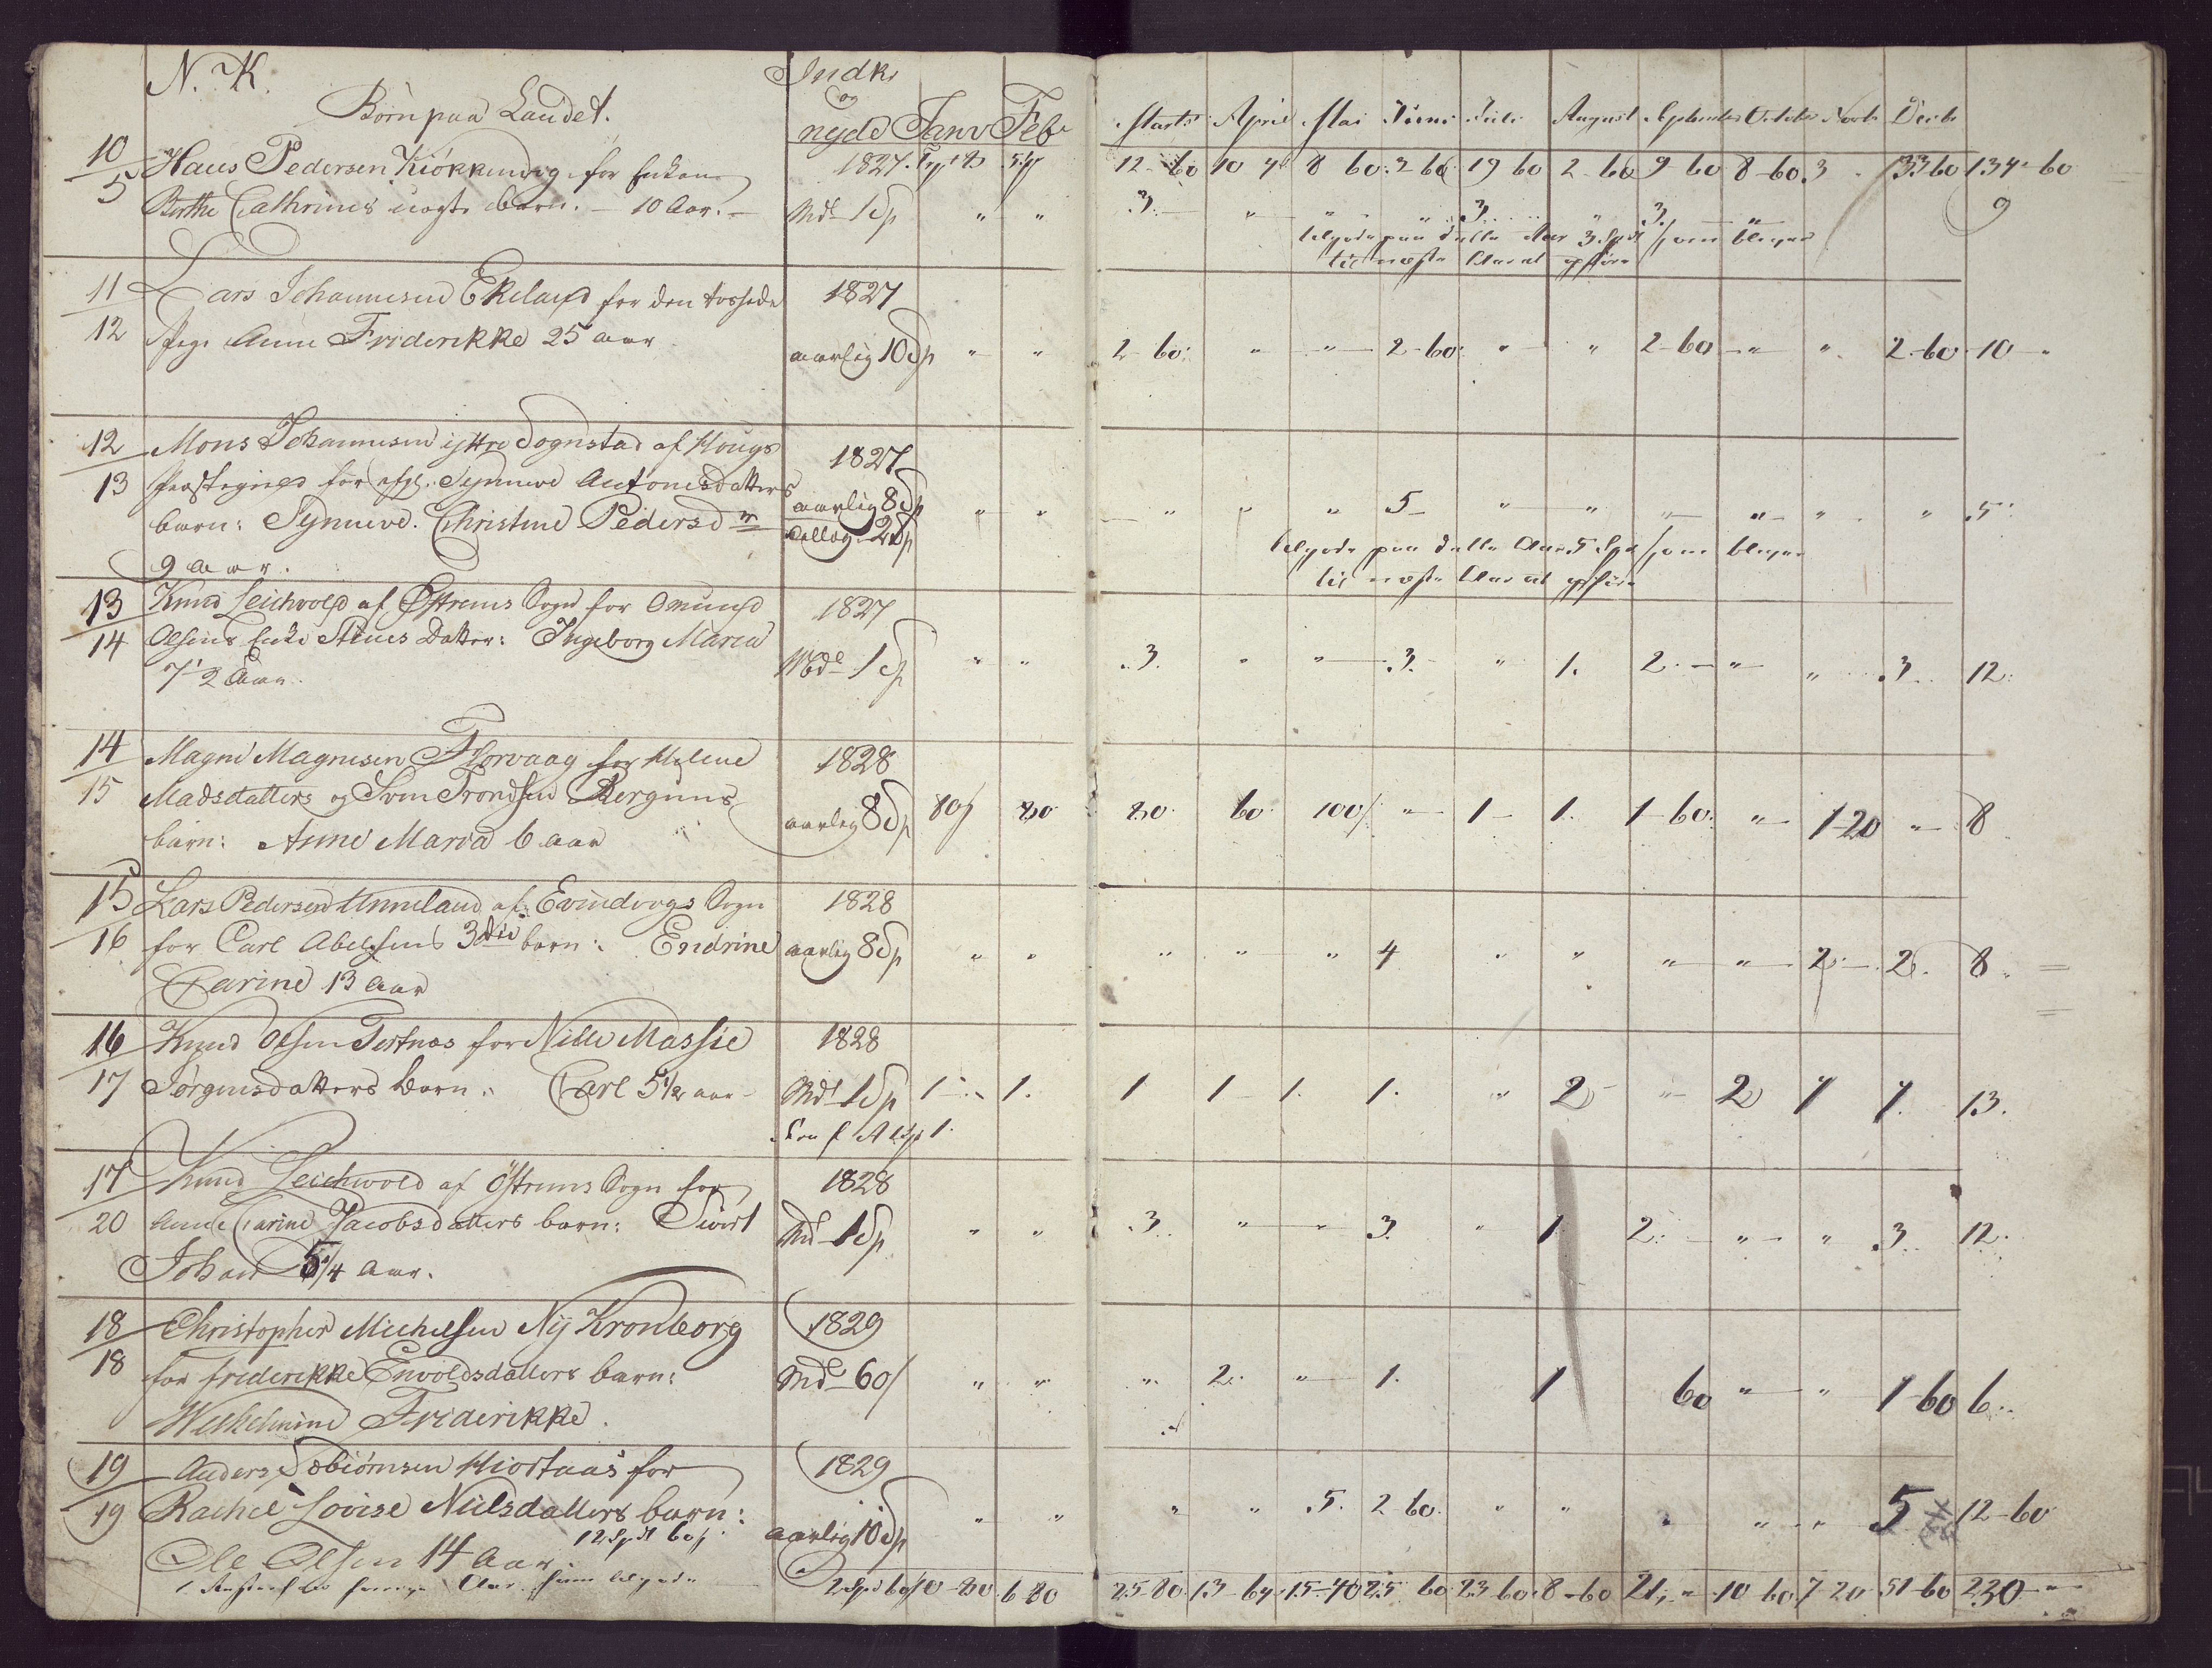 N. K.
Børn paa Landet.
Indk: og nyde Janv Feb: Marts April Mai Juni Juli August September October Novb Decb
10/5 Hans Pedersen Kiøkkenvig for Enken 1827. 12-60 10 8 60 2 60 19 60 2-60 9-60 8-60 3 33 60 134-60
Berthe Cathrines uægte Barn. - 10 Aar. - Md 1 Sp " " 3. " " " 3 " 3. " 9
tilgode paa dette Aar 3 Spd som bliver
til næste Aar at opføre
11/12 Lars Johannesen Ekeland for den tossede 1827
Pige Anne Friderikke 25 Aar aarlig 10 Sp " " 2-60 " " 2-60 " " 2-60 " " 2-60 10 "
12/13 Mons Johannesen yttre Sognstad af Hougs 1827
Præstegield for Synneve Antonisdatters aarlig 8 Sp " " " " " 5 " " " " " " 5
barn: Synneve Christine Pedersdr 2 Sp
9 Aar.
tilgode paa dette Aar 5 Spd som bliver
til næste Aar at opføre
13/14 Knud Leichvold af Østrems Sogn for Omund 1827
Olsens Enke Stines Datter: Ingeborg Maria Md 1 Sp " " 3. " " 3. " 1. 2. " " 3 12.
7 1/2 Aar.
14/15 Magne Magnesen Florvaag for Helene 1828
Madsdatters og Sven Trondsen Bergums aarlig 8 Sp 80 80 80 60 100 " 1 1. 1-60 " 1-20 " 8
barn: Anne Maria 6 aar
15/16 Lars Pedersen Unneland af Evindvigs Sogn 1828
for Carl Abelsens 3die barn: Endrine aarlig 8 Sp " " " " " 4 " " " " 2 2. 8
Carine 13 Aar
16/17 Knud Olsen Tertnæs for Nille Massie 1828
Jørgensdatters Barn: Carl 5 1/2 aar Md 1 Sp 1 1. 1 1 1. 1. " 2 " 2 1 1. 13.
1.
17/20 Knud Leichvold af Østrems Sogn for 1828
Anne Carine Jacobsdatters barn: Sivert Md 1 Sp " " 3. " " 3. " 1 2. " " 3 12.
Johan 5 1/4 Aar.
18/18 Christopher Michelsen Nÿ Kronborg 1829
for Friderikke Envoldsdatters barn: Md 60 " " " 2. " 1. 1 60 " " 1-60 6.
Wilhelmine Friderikke.
19/19 Anders Tobiørnsen Hiortaas for 1829
Rachel Lovise Nielsdatters barn: aarlig 10 Sp " " " " 5. 2 60. " " " " " 5 12-60
12 Spd 60
Ole Olsen 14 Aar.
Aar som tilgode 2 Spd 60 10-80 6-80 25-80 13-64 15-40 25 60 23-60 8-60 21 " 10 60 7 20 51-60 230 "